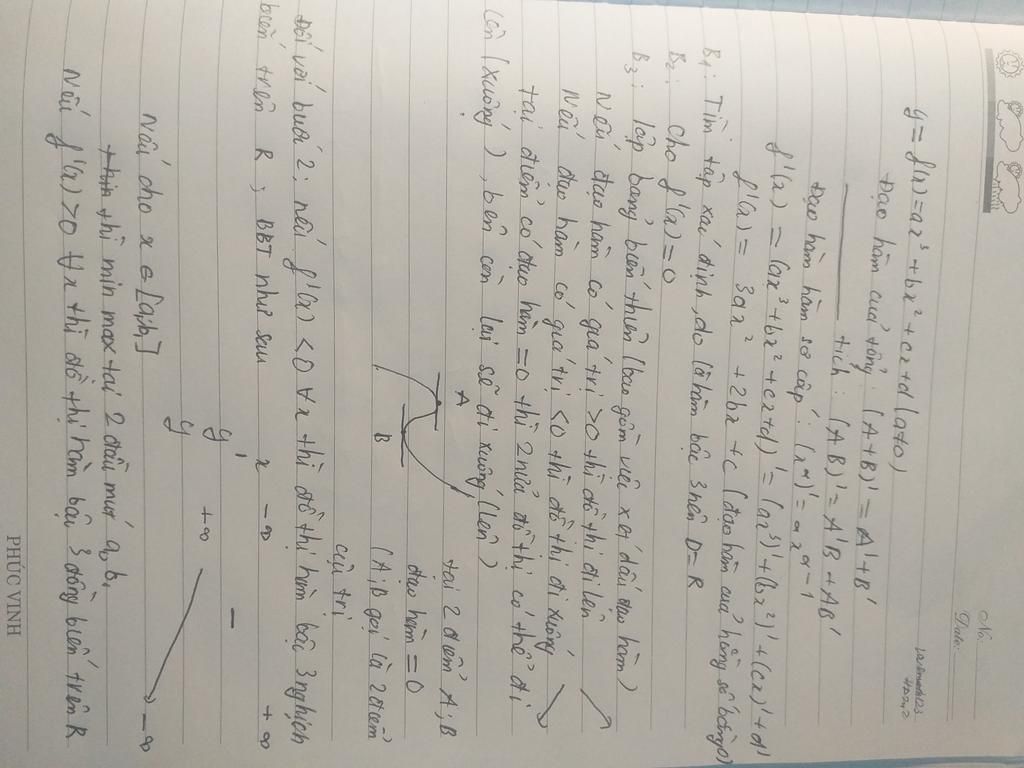 No:
Date:
y = f(x) = ax³ + bx² + cx + d (a≠0)
Đạo hàm của tổng: (A+B)' = A'+B'
tích: (AB)' = A'B + AB'
Đạo hàm hàm sơ cấp: (x^α)' = αx^(α-1)
f'(x) = (ax³+bx²+cx+d)' = (ax³)' + (bx²)' + (cx)' + d'
f'(x) = 3ax² + 2bx + c (đạo hàm của hằng số bằng 0)
B1: Tìm tập xác định, do là hàm bậc 3 nên D=R
B2: Cho f'(x)=0
B3: lập bảng biến thiên (bao gồm việc xét dấu đạo hàm)
Nếu đạo hàm có giá trị >0 thì đồ thị đi lên
Nếu đạo hàm có giá trị <0 thì đồ thị đi xuống
tại điểm có đạo hàm =0 thì 2 nửa đồ thị có thể đi
lên (xuống), bên còn lại sẽ đi xuống (lên)
A
B
tại 2 điểm A; B
đạo hàm = 0
(A; B gọi là 2 điểm
cực trị
Đối với bước 2, nếu f'(x) < 0 ∀x thì đồ thị hàm bậc 3 nghịch
biến trên R, BBT như sau
x -∞ +∞
y' -
y +∞ -∞
Nếu cho x ∈ [a,b]
thì min max tại 2 đầu mút a, b,
Nếu f'(x) >0 ∀x thì đồ thị hàm bậc 3 đồng biến trên R
PHÚC VINH